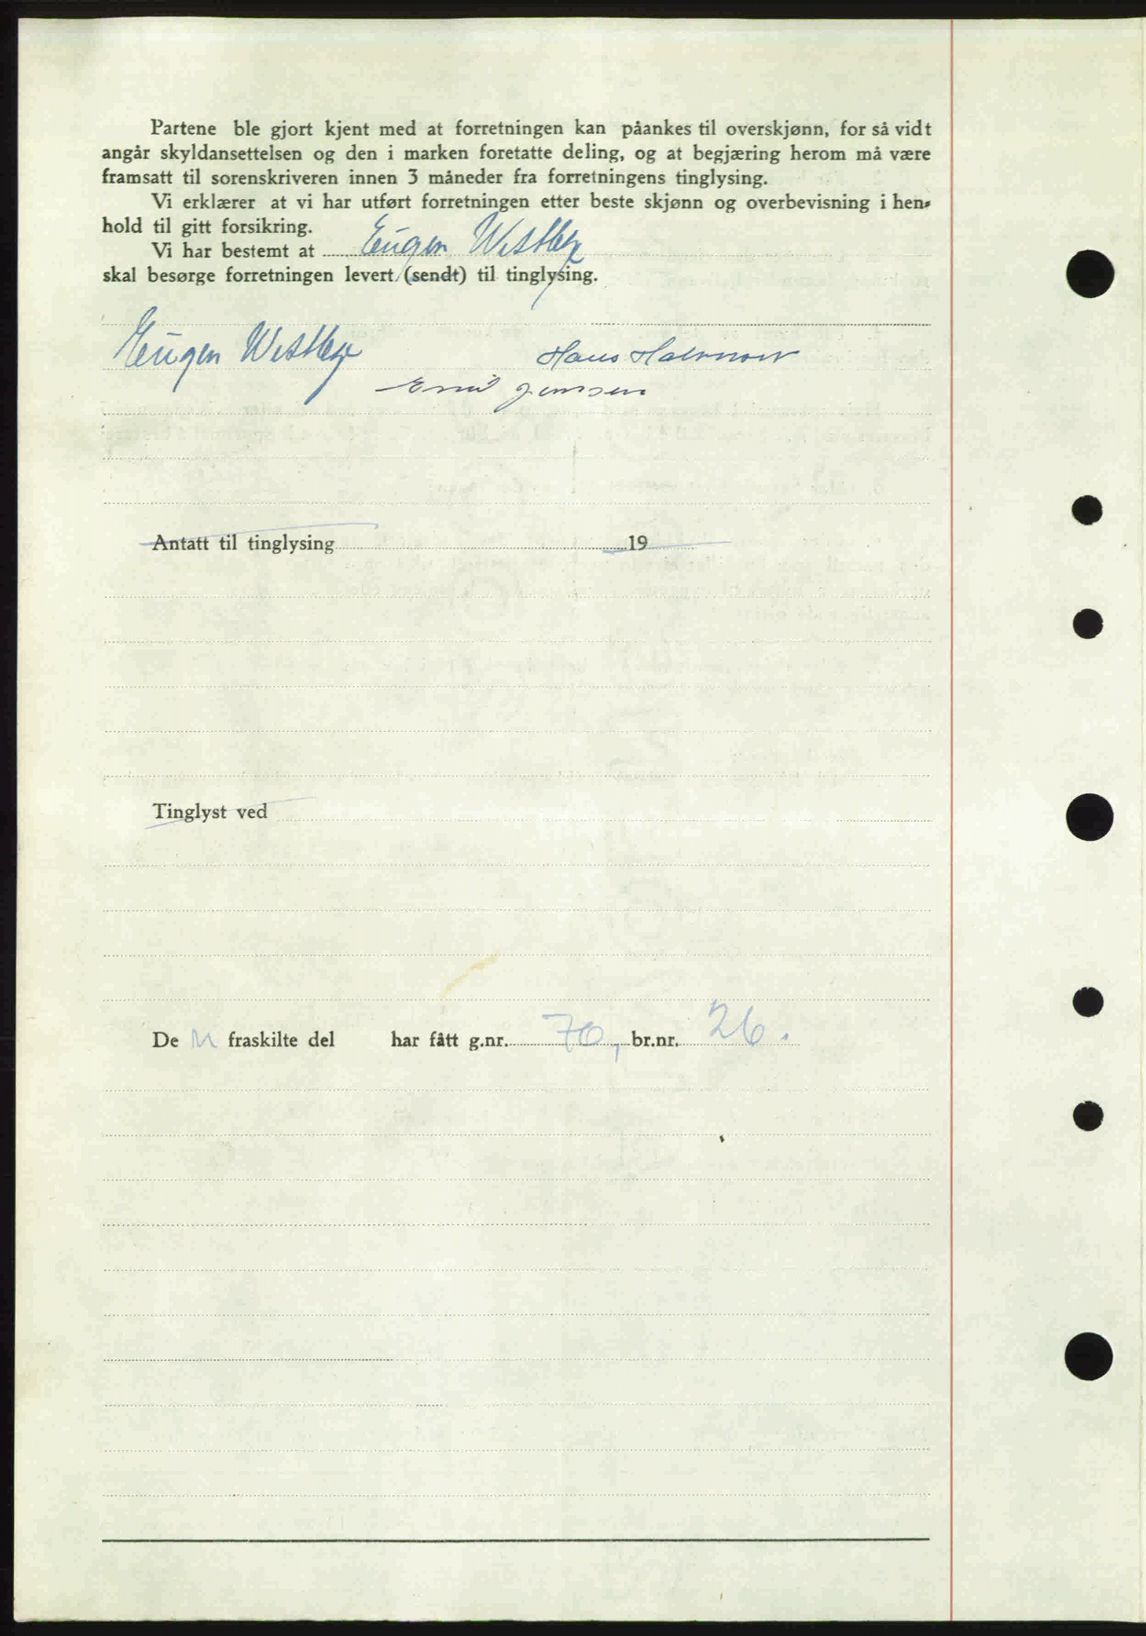 Partene ble gjort kjent med at forretningen kan påankes til overskjønn, for så vidt
angår skyldansettelsen og den i marken foretatte deling, og at begjæring herom må være
framsatt til sorenskriveren innen 3 måneder fra forretningens tinglysing.
Vi erklærer at vi har utført forretningen etter beste skjønn og overbevisning i hen-
hold til gitt forsikring.
Vi har bestemt at Eugen Westbye
skal besørge forretningen levert (sendt) til tinglysing.
Eugen Westbye Hans Halvorsen
Emil Jenssen
Antatt til tinglysing 19
Tinglyst ved
De n fraskilte del har fått g.nr. 70, br.nr. 26.